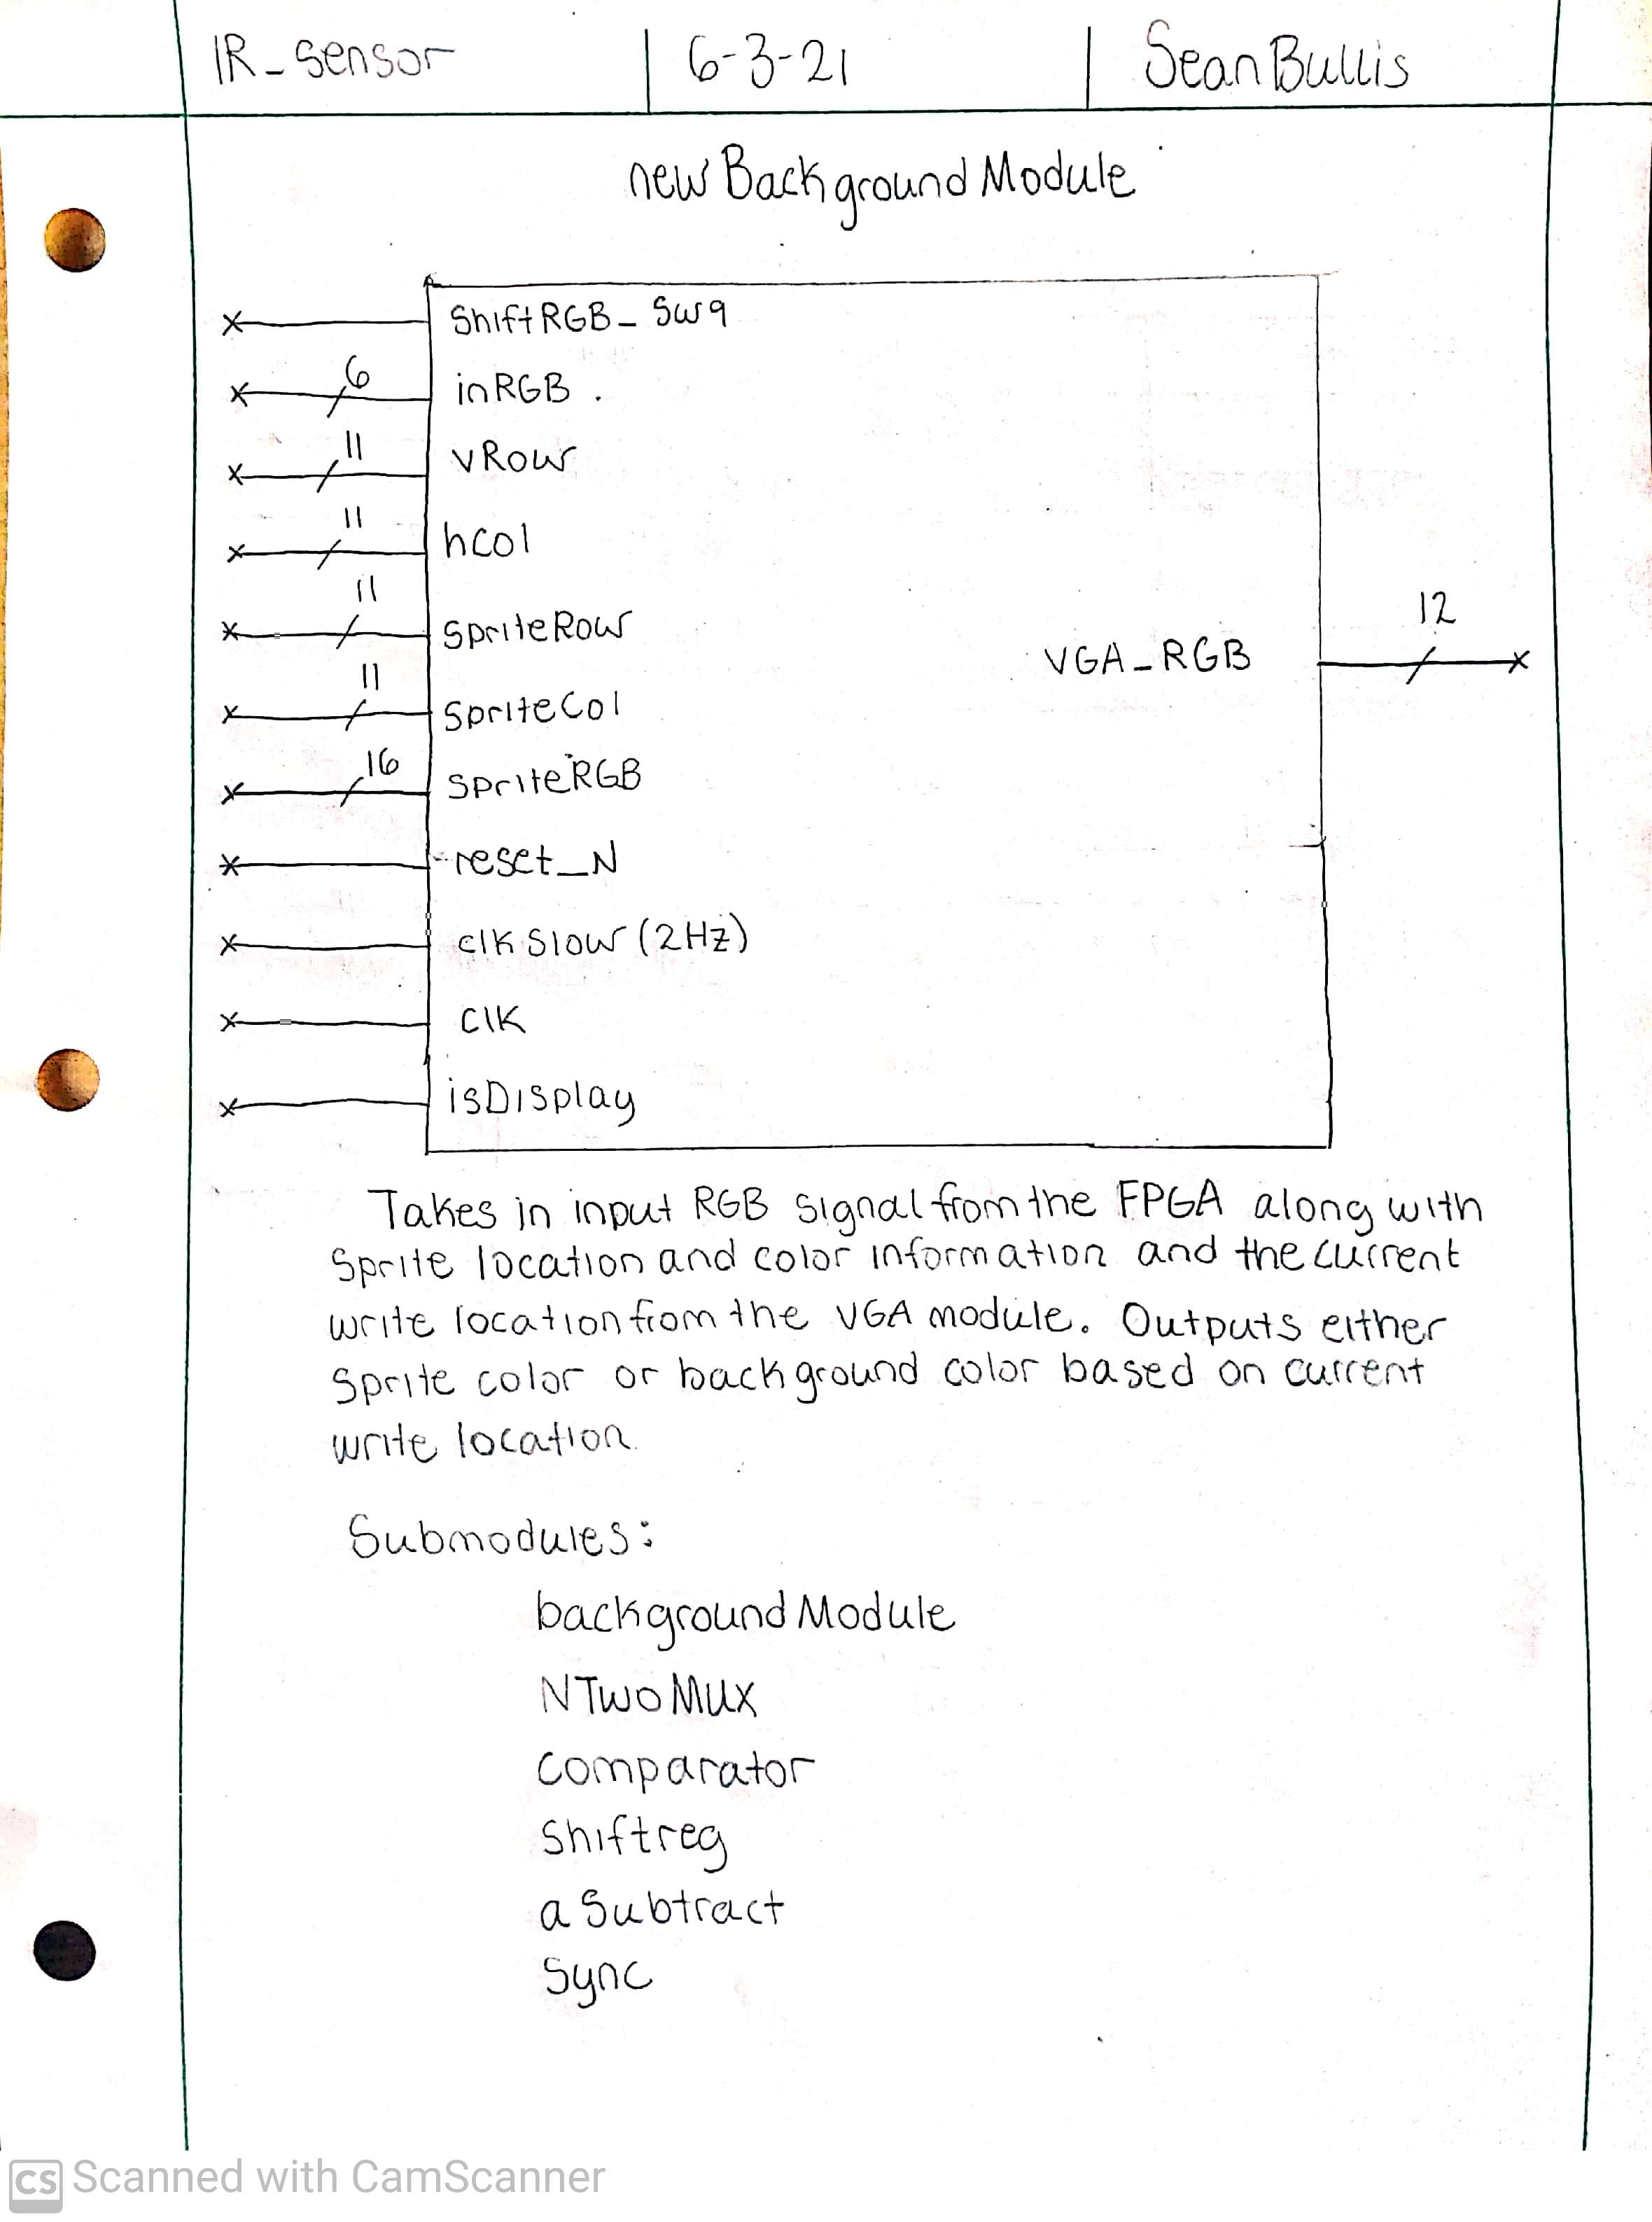 IR_Sensor 6-3-21 Sean Bullis
new Background Module
ShiftRGB_Sw9
6
inRGB
11
vRow
11
hCol
11
SpriteRow
12
11
VGA_RGB
SpriteCol
16
SpriteRGB
reset_N
clkSlow (2Hz)
clk
isDisplay
Takes in input RGB signal from the FPGA along with
Sprite location and color information and the current
write location from the VGA module. Outputs either
Sprite color or background color based on current
write location.
Submodules:
background Module
NTwoMux
comparator
Shiftreg
aSubtract
Sync
CS Scanned with CamScanner